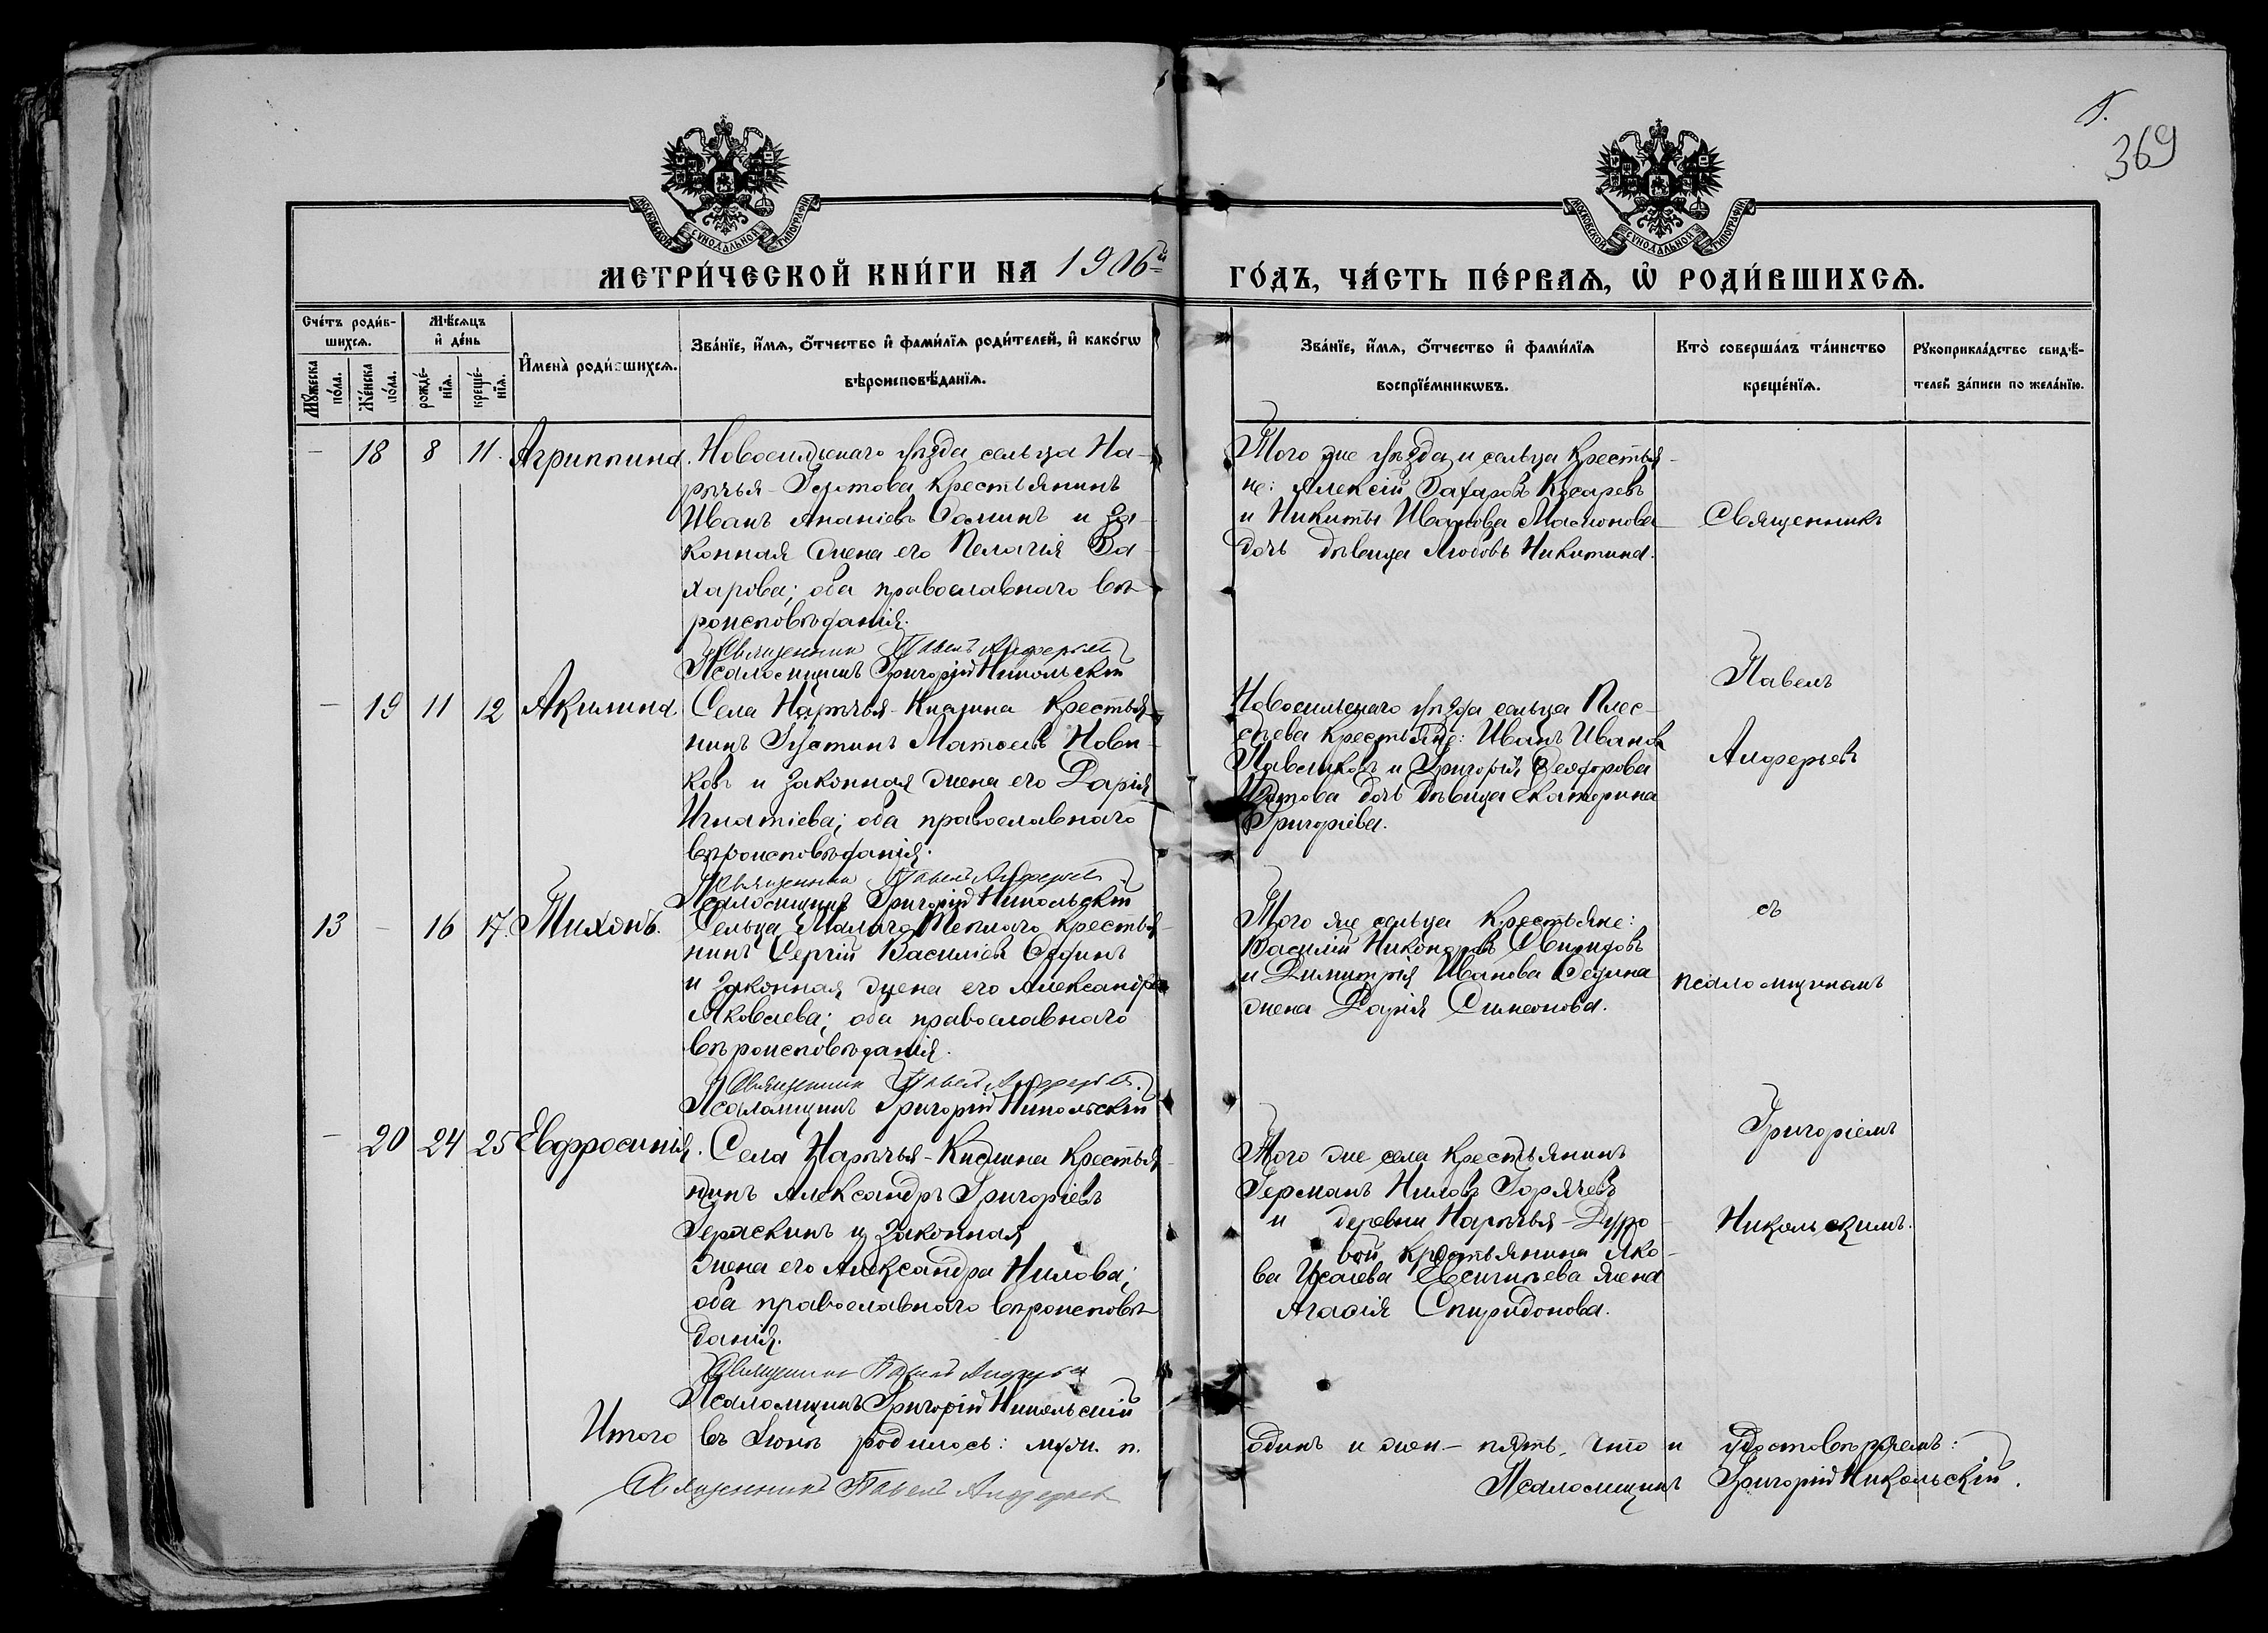 369
МОСКОВСКОЙ СѴНОДАЛЬНОЙ ТИПОГРАФІИ
МОСКОВСКОЙ СѴНОДАЛЬНОЙ ТИПОГРАФІИ
МЕТРИ́ЧЕСКОЙ КНИ́ГИ НА 1906й
ГО́ДЪ, ЧА́СТЬ ПЕ́РВАѦ, Ѡ҆ РОДИ́ВШИХСѦ.
Сче́тъ роди́в-
шихсѧ.
Мꙋ́жеска
по́ла.
Же́нска
по́ла.
Мѣ́сѧцъ
и҆ де́нь
рожде́-
нїѧ.
креще́-
нїѧ.
И҆мена̀ роди́вшихсѧ.
Зва́нїе, и҆́мѧ, ѻ҆́тчество и҆ фами́лїѧ роди́телей, и҆ како́гѡ
вѣроисповѣ́данїѧ.
Зва́нїе, и҆́мѧ, ѻ҆́тчество и҆ фами́лїѧ
воспрїе́мникѡвъ.
Кто̀ соверша́лъ та́инство
креще́нїѧ.
Рꙋкоприкла́дство свидѣ́-
телей за́писи по жела́нїю.
— 18 8 11. Агриппина.
Новосильскаго уѣзда сельца На-
рычья-Глотова крестьянинъ
Иванъ Ананіевъ Саминъ и за-
конная жена его Пелагія За-
харова; оба православнаго вѣ-
роисповѣданія.
Священникъ Павелъ Алферьевъ
Псаломщикъ Григорій Никольскій
Того же уѣзда и сельца крестья-
не: Алексій Захаровъ Косаревъ
и Никиты Иванова
дочь дѣвица Любовь Никитина.
— 19 11 12 Акилина
Села Нарычья-Кислина крестья-
нинъ Густинъ Матоевъ Нови-
ковъ и законная жена его Дарія
Игнатіева; оба православнаго
вѣроисповѣданія.
Священникъ Павелъ Алферьевъ
Псаломщикъ Григорій Никольскій
Новосильскаго уѣзда сельца Плес-
сѣева крестьяне: Иванъ Ивановъ
и Григорія Ѳеодорова
дочь дѣвица Екатерина
Григоріева.
13 — 16 17. Тихонъ.
Сельца Малаго Теплаго крестья-
нинъ Сергій Василіевъ Сединъ
и законная жена его Александра
Яковлева; оба православнаго
вѣроисповѣданія.
Священникъ Павелъ Алферьевъ
Псаломщикъ Григорій Никольскій
Того же сельца крестьяне:
Василій Никоноровъ
и Димитрія Иванова Седина
жена Дарія Симеонова.
— 20 24 25 Евфросинія.
Села Нарычья-Кислина крестья-
нинъ Александръ Григоріевъ
и законная
жена его Александра Нилова;
оба православнаго вѣроисповѣ-
данія.
Священникъ Павелъ Алферьевъ
Псаломщикъ Григорій Никольскій
Того же села крестьянинъ
Германъ Ниловъ Горячевъ
и деревни Нарычья-Дуро-
вой крестьянина Яко-
ва Исаева Евсигнѣева жена
Агафія Спиридонова.
Священникъ
Павелъ
Алферьевъ
съ
псаломщикомъ
Григоріемъ
Никольскимъ.
Итого въ Іюнѣ родилось: муж. п. одинъ и жен — пять, что и удостовѣряемъ:
Священникъ Павелъ Алферьевъ
Псаломщикъ Григорій Никольскій.